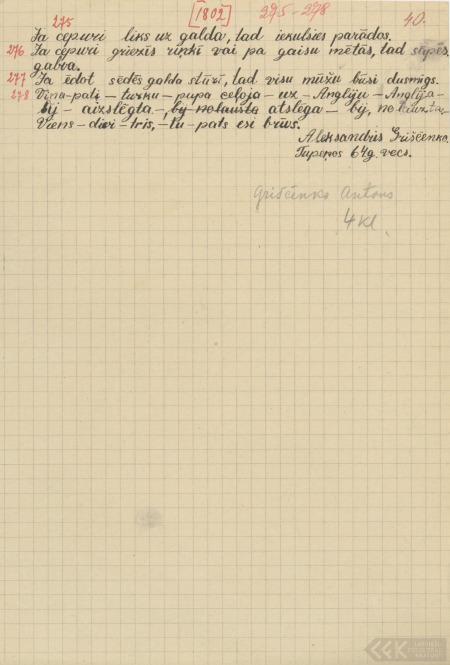 275 [1802] 275-278 40.
Ja cepuri liks uz galda, tad iekulsies parādos.
276 Ja cepuri griezīs riņķī vai pa gaisu mētās, tad sāpēs
galva.
277 Ja ēdot sēdēs galda stūrī, tad visu mūžu būsi dusmīgs.
278 Viņa-pati-turku-pupa ceļoja-uz-Angliju-Anglija-
bij-aizslēgta-, by nolausta atslēga-bij, nolauzta,-
Viens-divi-trīs,-tu-pats esi brīvs.
Aleksandrs Griščenko.
Tupeņos 64g. vecs.
Griščenko Antons
4 kl.